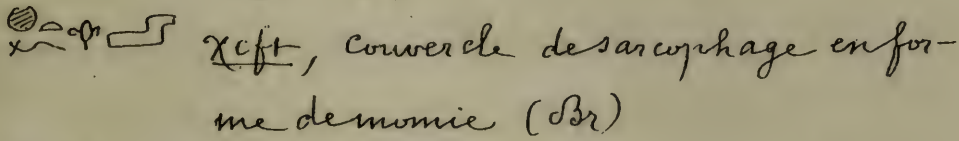 χcft, couvercle de sarcophage en for-
me de momie (Br)